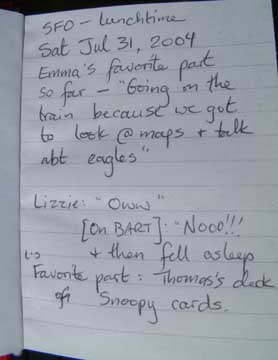 SFO - lunchtime
Sat Jul 31, 2004
Emma's favorite part
so far - "Going on the
train because we got
to look @ maps + talk
abt eagles"
Lizzie: "Oww"
[On BART]: "Nooo!!!
+ then fell asleep
Favorite part: Thomas's deck
of Snoopy cards.